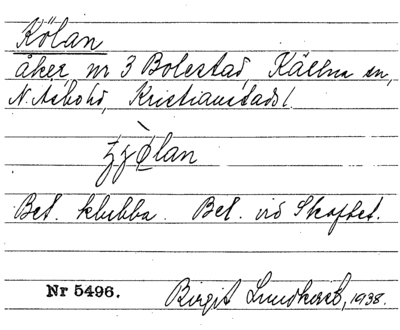 Kölan
åker, nr 3 Bolestad, Källna sn,
N. Åsbohd, Kristianstads l.
Bet. klubba. Bel. vid Skaftet.
Nr 5496. Birgit Lundkvist, 1938.